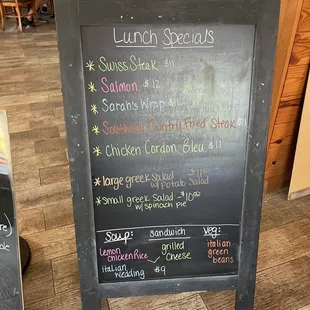 Lunch Specials
* Swiss Steak $11
* Salmon $12
* Sarah's Wrap
* Southern Country Fried Steak
* Chicken Cordon Bleu $11
* large greek Salad
w/ Potato Salad
* small greek Salad
w/ spinach pie
Soup: Sandwich Veg:
Lemon Chicken Rice
Italian Wedding
grilled Cheese
$9
Italian green beans